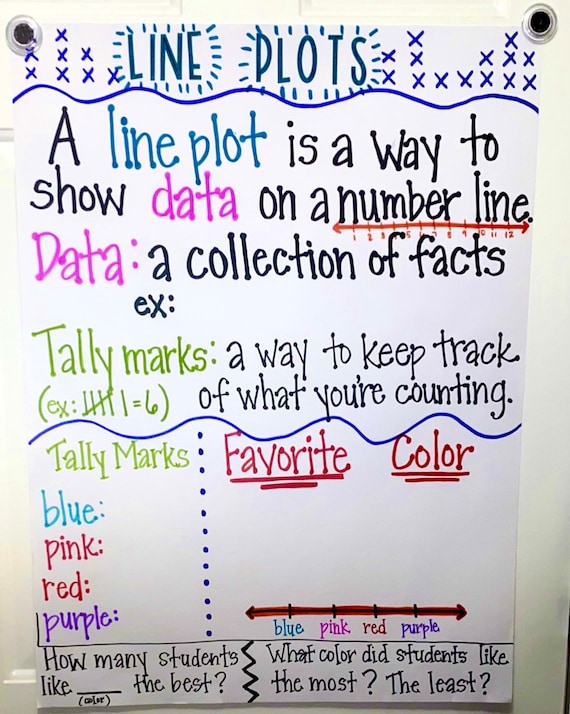 LINE PLOTS
A line plot is a way to
show data on a number line.
1 2 3 4 5 6 7 8 9 10 11 12
Data: a collection of facts
ex:
Tally marks: a way to keep track
(ex: 卌 | = 6) of what you're counting.
Tally Marks
Favorite Color
blue:
pink:
red:
purple:
blue pink red purple
How many students
like ____ the best?
(color)
What color did students like
the most? The least?